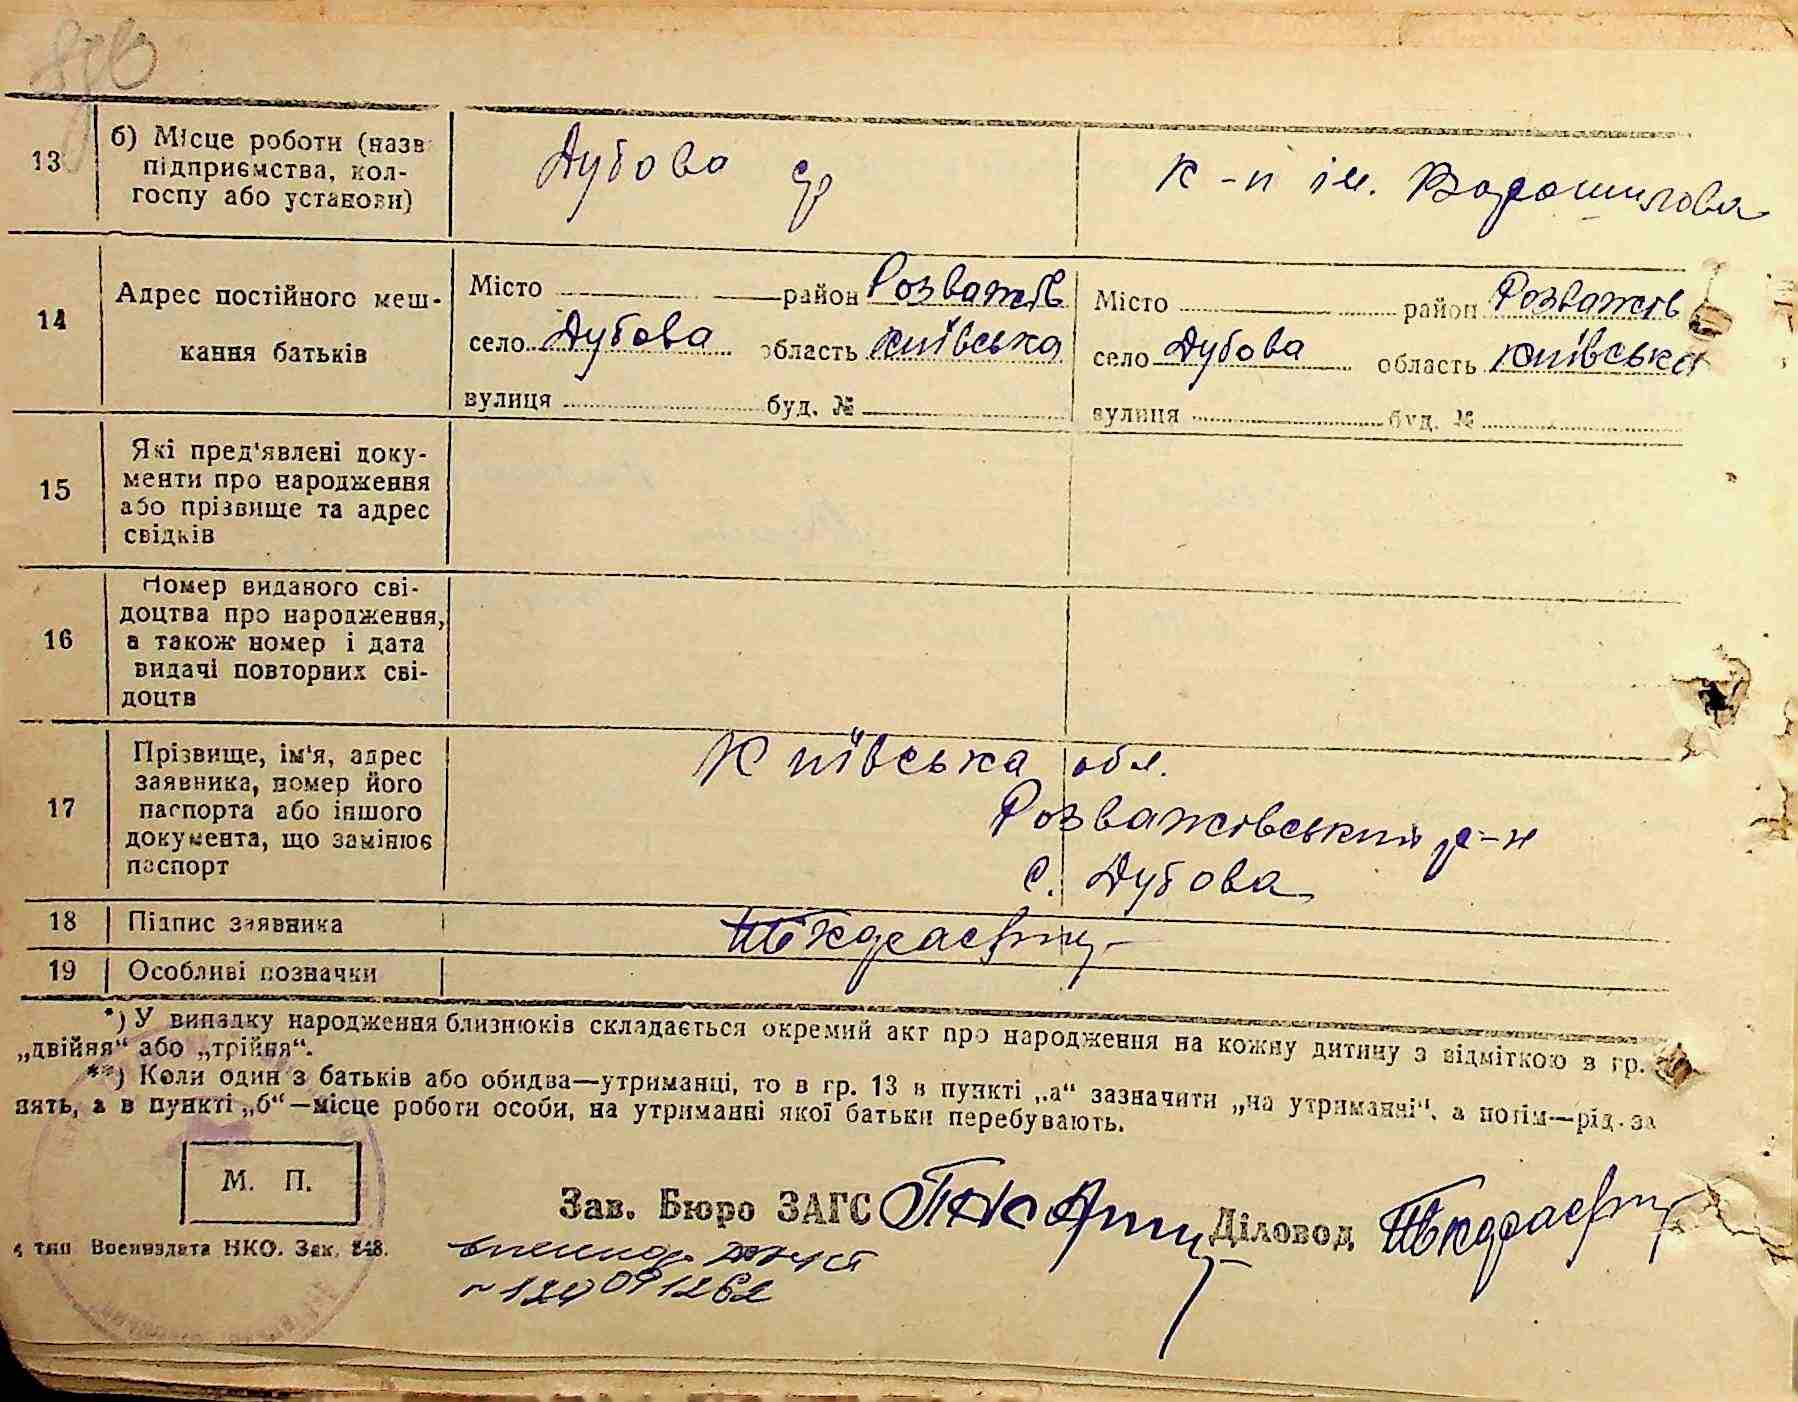 13
б) Місце роботи (назв
підприємства, кол-
госпу або установи)
Дубова ср
к-п ім. Ворошилова
14
Адрес постійного меш-
кання батьків
Місто район Розважів
село Дубова область Київська
вулиця буд. №
Місто район Розважів
село Дубова область Київська
вулиця буд. №
15
Які пред'явлені доку-
менти про народження
або прізвище та адрес
свідків
16
Номер виданого сві-
доцтва про народження,
а також номер і дата
видачі повторних сві-
доцтв
17
Прізвище, ім'я, адрес
заявника, номер його
паспорта або іншого
документа, що замінює
паспорт
Київська обл.
Розважівський р-н
с. Дубова
18 Підпис заявника
19 Особливі позначки
*) У випадку народження близнюків складається окремий акт про народження на кожну дитину з відміткою в гр.
„двійня“ або „трійня“.
**) Коли один з батьків або обидва—утриманці, то в гр. 13 в пункті „а“ зазначити „на утриманні“, а потім—рід за
нять, а в пункті „б“—місце роботи особи, на утриманні якої батьки перебувають.
М. П.
Зав. Бюро ЗАГС
Діловод
тип Военвздата НКО. Зак. 848.